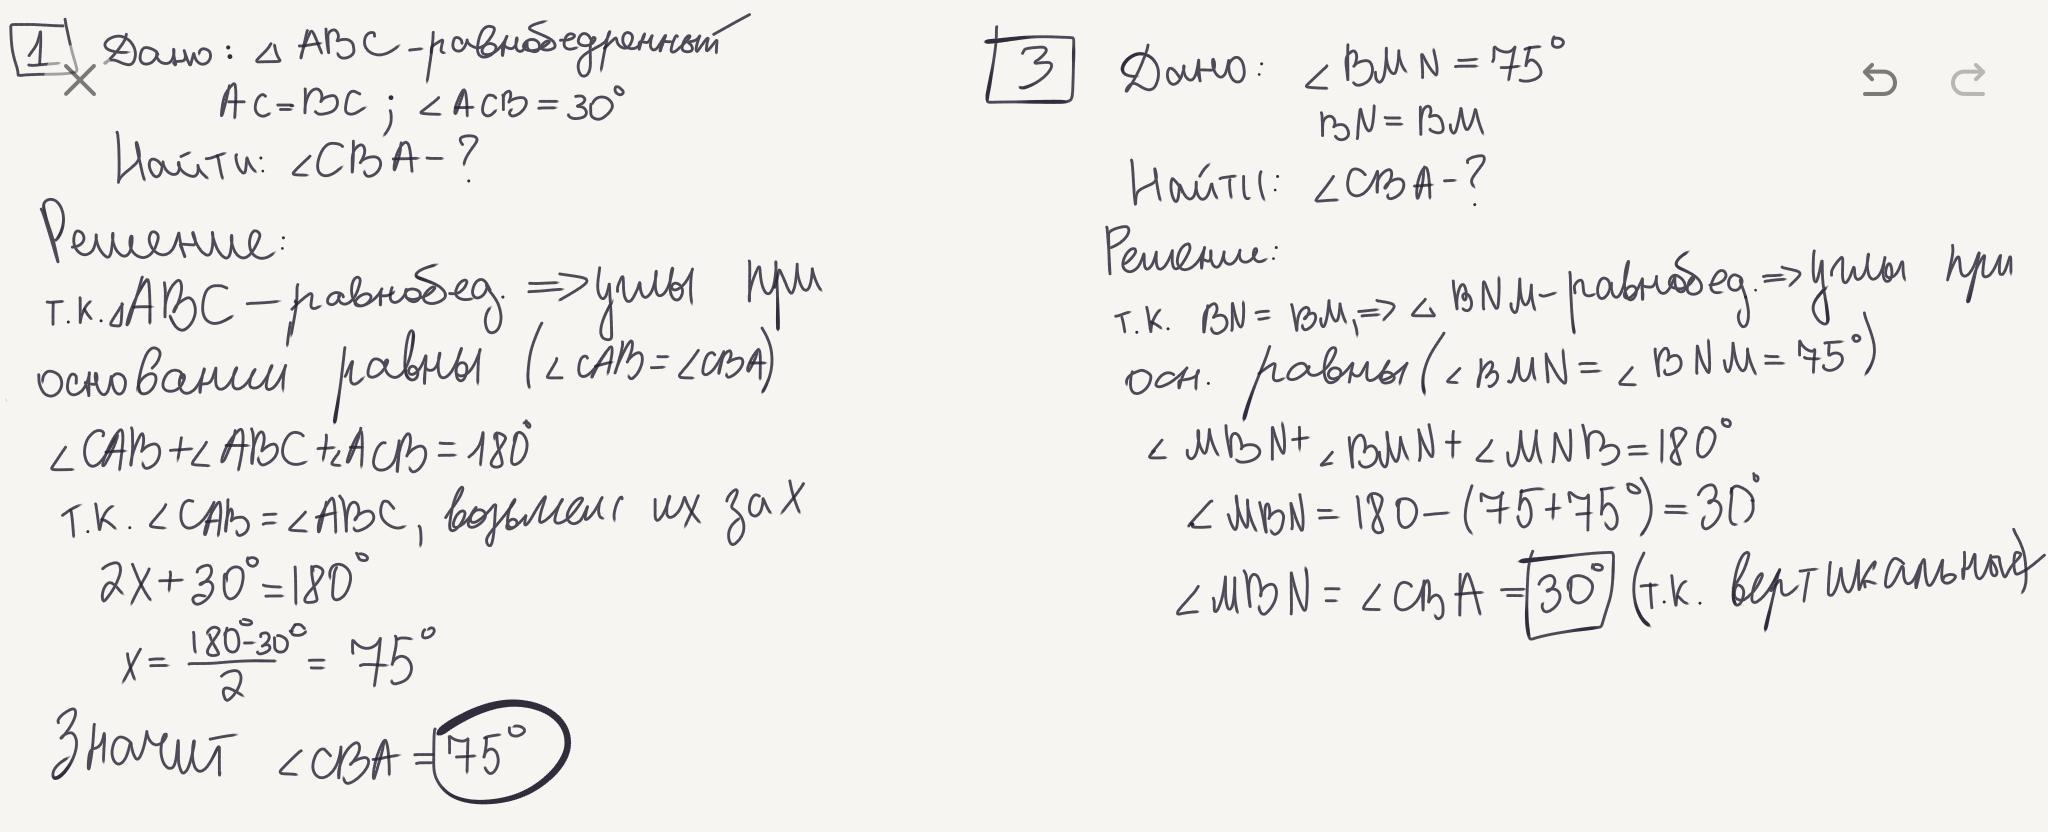 1 Дано: △ ABC - равнобедренный
AC=BC ; ∠ACB=30°
Найти: ∠CBA-?
Решение:
т.к. △ABC - равнобед. => углы при
основании равны (∠CAB=∠CBA)
∠CAB+∠ABC+∠ACB=180°
Т.к. ∠CAB=∠ABC, возьмем их за x
2x+30°=180°
x= (180°-30°)/2 = 75°
Значит ∠CBA=75°
3 Дано: ∠BMN=75°
BN=BM
Найти: ∠CBA-?
Решение:
т.к. BN=BM, => △ BNM - равнобед. => углы при
осн. равны (∠BMN=∠BNM=75°)
∠MBN+∠BMN+∠MNB=180°
∠MBN=180-(75+75°)=30°
∠MBN=∠CBA=30° (т.к. вертикальные)